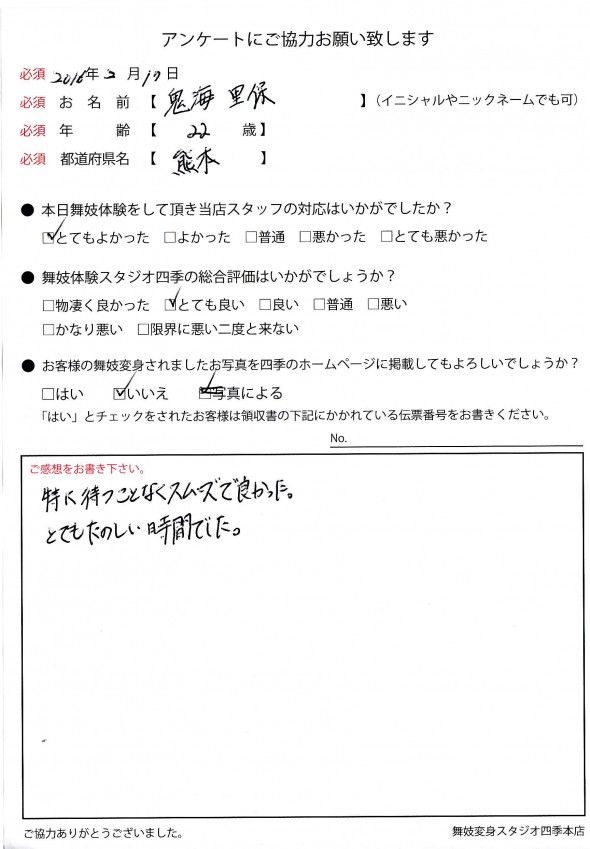 アンケートにご協力お願い致します
必須 2016年2月17日
必須 お名前【 鬼海 里保 】（イニシャルやニックネームでも可）
必須 年齢【 22 歳】
必須 都道府県名【 熊本 】
● 本日舞妓体験をして頂き当店スタッフの対応はいかがでしたか？
☑とてもよかった □よかった □普通 □悪かった □とても悪かった
● 舞妓体験スタジオ四季の総合評価はいかがでしょうか？
□物凄く良かった ☑とても良い □良い □普通 □悪い
□かなり悪い □限界に悪い二度と来ない
● お客様の舞妓変身されましたお写真を四季のホームページに掲載してもよろしいでしょうか？
□はい ☑いいえ ☑写真による
「はい」とチェックをされたお客様は領収書の下記にかかれている伝票番号をお書きください。
No.
ご感想をお書き下さい。
特に待つことなくスムーズで良かった。
とてもたのしい時間でした。
ご協力ありがとうございました。
舞妓変身スタジオ四季本店